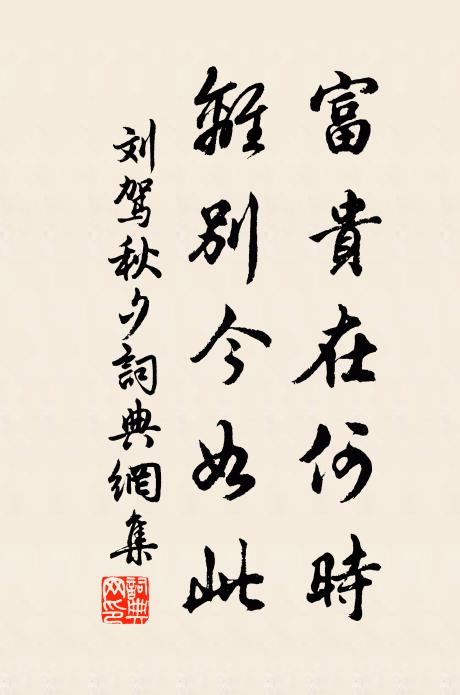 富貴在何時
離別今如此
刘驾秋夕詞典網集
詞典網印